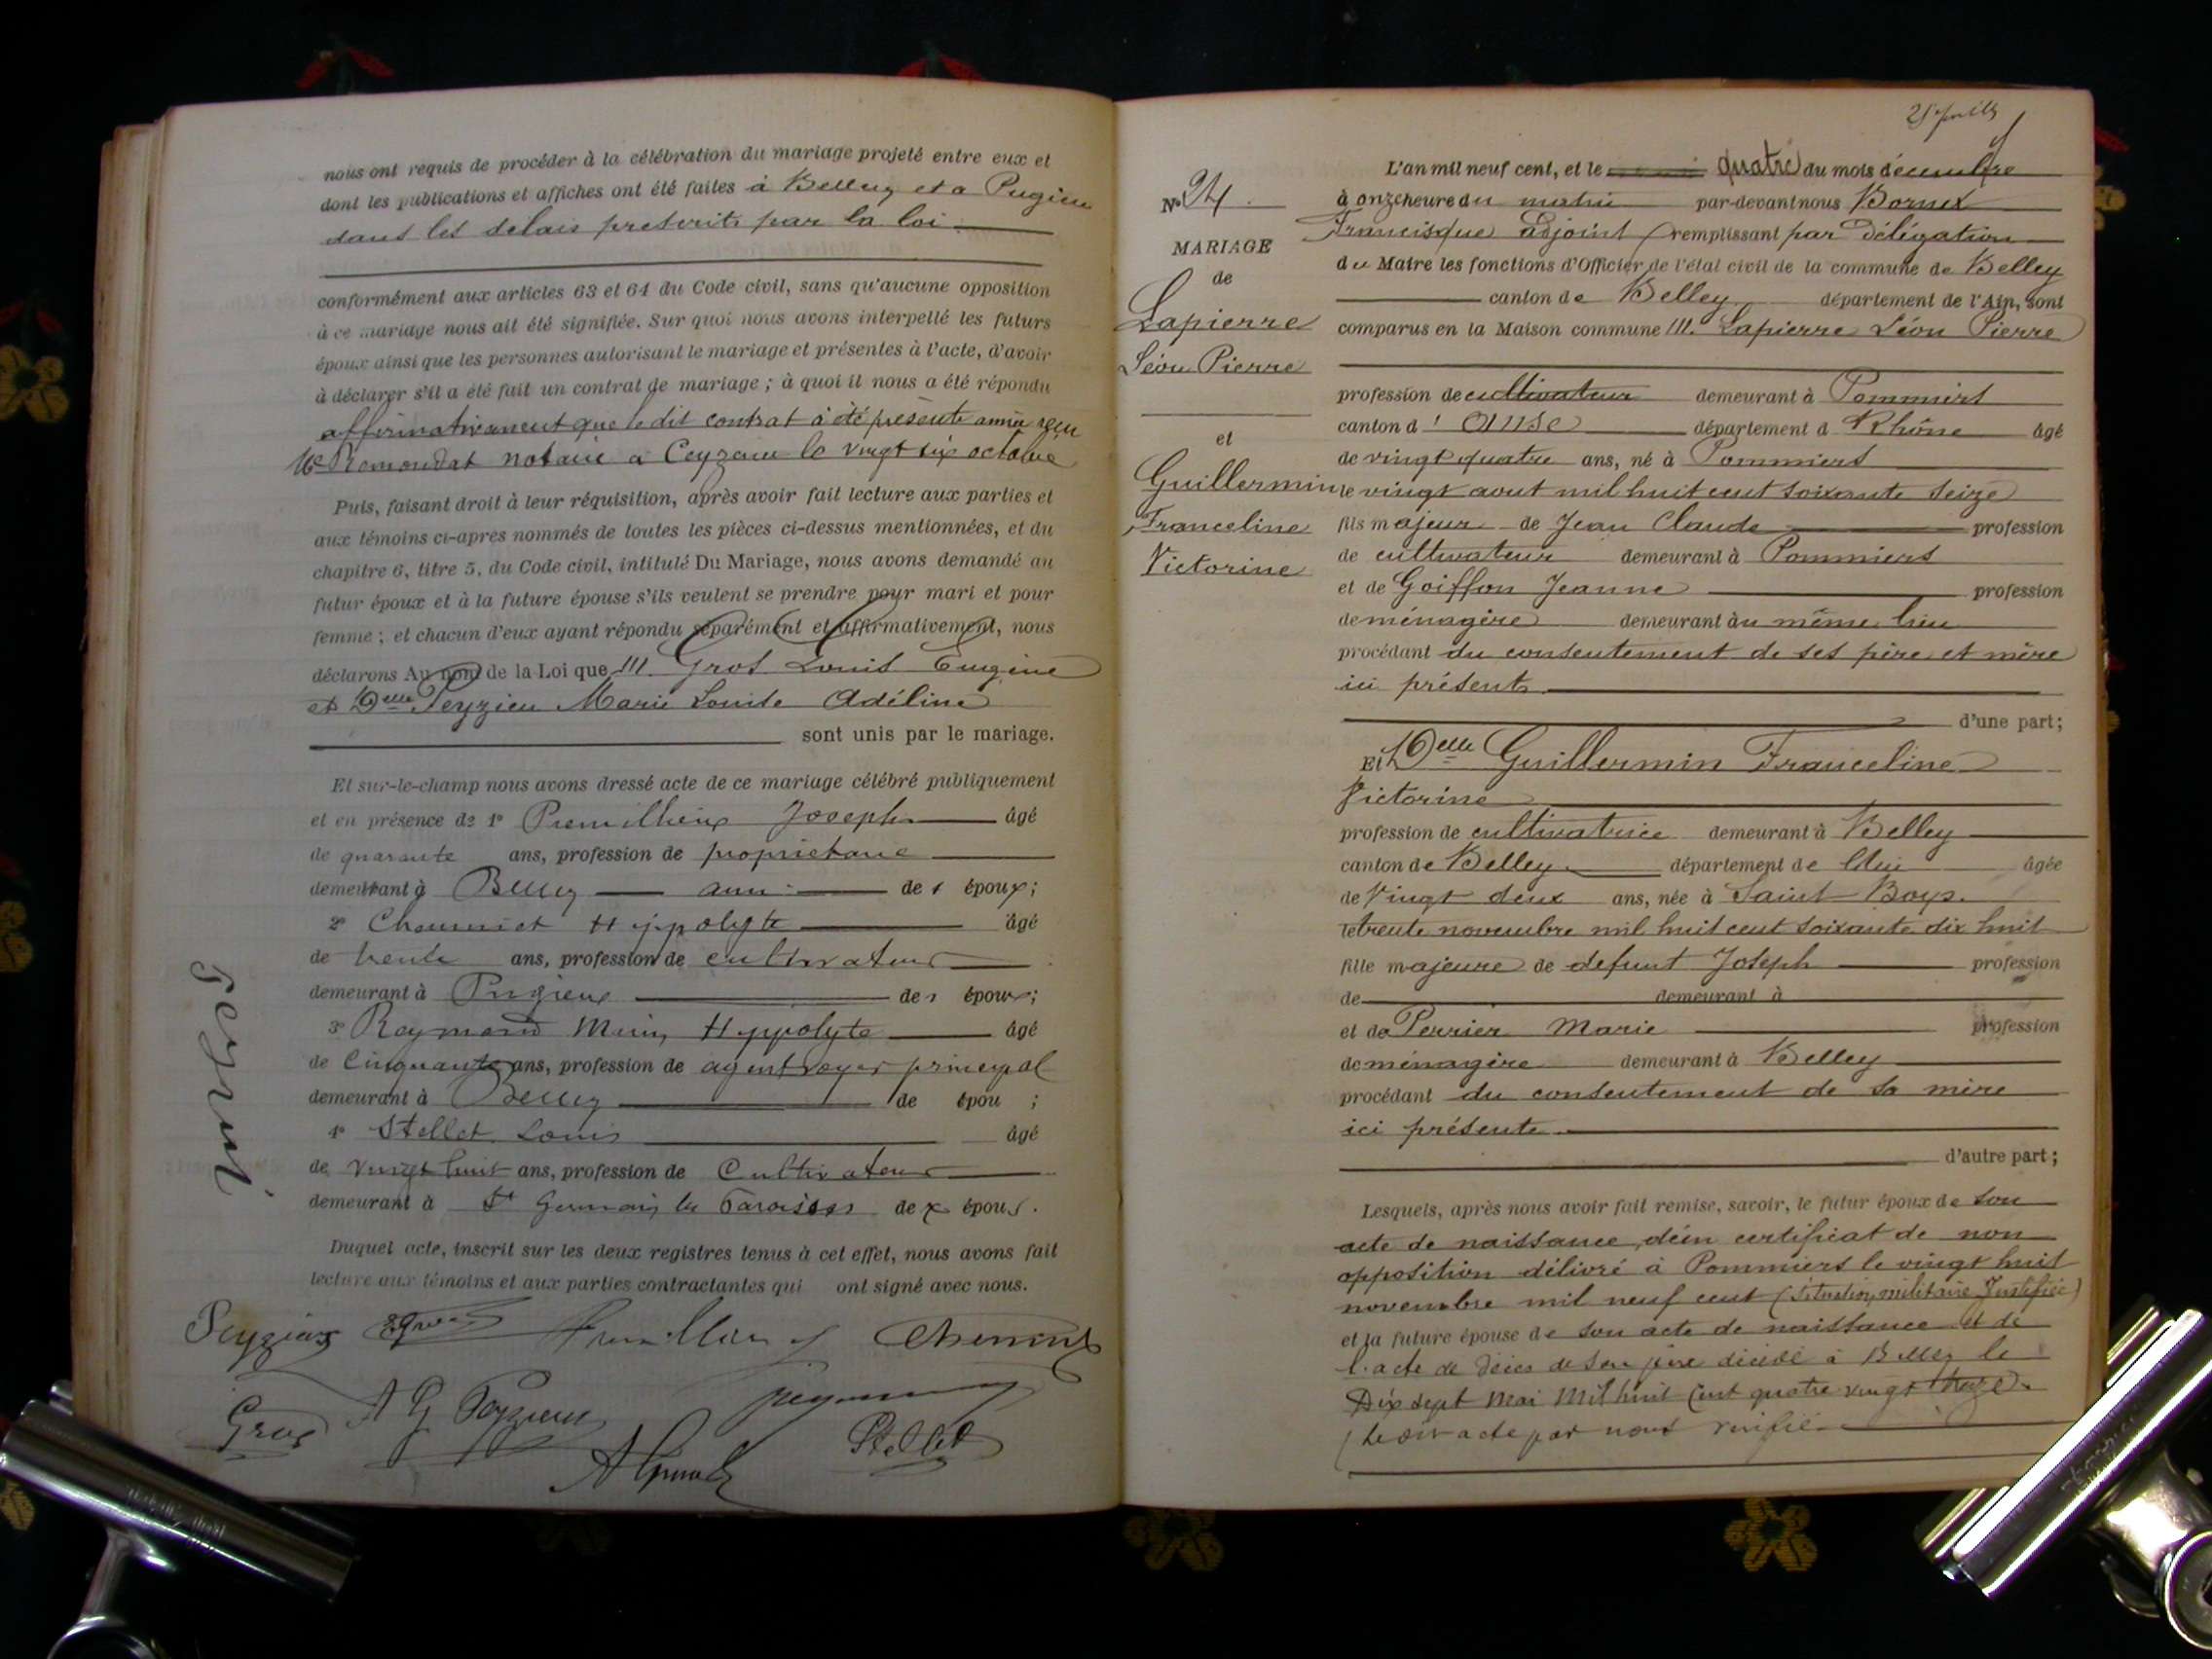 nous ont requis de procéder à la célébration du mariage projeté entre eux et
dont les publications et affiches ont été faites à Belley et a Pugieu
dans les délais prescrits par la loi
conformément aux articles 63 et 64 du Code civil, sans qu'aucune opposition
à ce mariage nous ait été signifiée. Sur quoi nous avons interpellé les futurs
époux ainsi que les personnes autorisant le mariage et présentes à l'acte, d'avoir
à déclarer s'il a été fait un contrat de mariage ; à quoi il nous a été répondu
affirmativement que le dit contrat a été présenté reçu
Me Remondat notaire a Ceyzerieu le vingt six octobre
Puis, faisant droit à leur réquisition, après avoir fait lecture aux parties et
aux témoins ci-après nommés de toutes les pièces ci-dessus mentionnées, et du
chapitre 6, titre 5, du Code civil, intitulé Du Mariage, nous avons demandé au
futur époux et à la future épouse s'ils veulent se prendre pour mari et pour
femme ; et chacun d'eux ayant répondu séparément et affirmativement, nous
déclarons Au nom de la Loi que M. Gros Louis Eugène
et Delle Peyzieu Marie Louise Adéline
sont unis par le mariage.
Et sur-le-champ nous avons dressé acte de ce mariage célébré publiquement
et en présence de 1° Premillieux Joseph âgé
de quarante ans, profession de propriétaire
demeurant à Belley ami des époux ;
2° Hippolyte âgé
de trente ans, profession de cultivateur
demeurant à Pugieu des époux ;
3° Raymond Hippolyte âgé
de Cinquante ans, profession de agent voyer principal
demeurant à Belley de épou ;
4° Stellet Louis âgé
de vingt huit ans, profession de Cultivateur
demeurant à St Germain les Paroisses des époux.
Duquel acte, inscrit sur les deux registres tenus à cet effet, nous avons fait
lecture aux témoins et aux parties contractantes qui ont signé avec nous.
Peyzieu
Gros
Stellet
25 Juillet
N° 24.
MARIAGE
de
Lapierre
Léon Pierre
et
Guillermin
Franceline
Victorine
L'an mil neuf cent, et le quatre du mois décembre
à onze heure du matin par-devant nous Bornet
Francisque adjoint remplissant par délégation
du Maire les fonctions d'Officier de l'état civil de la commune de Belley
canton de Belley département de l'Ain, sont
comparus en la Maison commune M. Lapierre Léon Pierre
profession de cultivateur demeurant à Pommiers
canton d'Anse département d Rhône âgé
de vingt quatre ans, né à Pommiers
le vingt aout mil huit cent soixante seize
fils majeur de Jean Claude profession
de cultivateur demeurant à Pommiers
et de Goiffon Jeanne profession
de ménagère demeurant au même lieu
procédant du consentement de ses père et mère
ici présents
d'une part ;
Et Delle Guillermin Franceline
Victorine
profession de cultivatrice demeurant à Belley
canton de Belley département de l'Ain âgée
de Vingt deux ans, née à Saint Boys.
le trente novembre mil huit cent soixante dix huit
fille majeure de defunt Joseph profession
de demeurant à
et de Perrier Marie profession
de ménagère demeurant à Belley
procédant du consentement de sa mère
ici présente.
d'autre part ;
Lesquels, après nous avoir fait remise, savoir, le futur époux de son
acte de naissance, d'un certificat de non
opposition délivré à Pommiers le vingt huit
novembre mil neuf cent (situation militaire Justifiée)
et la future épouse de son acte de naissance et de
l'acte de décès de son père décédé à Belley le
Dix sept Mai Mil huit cent quatre vingt treize.
le dit acte par nous vérifié.